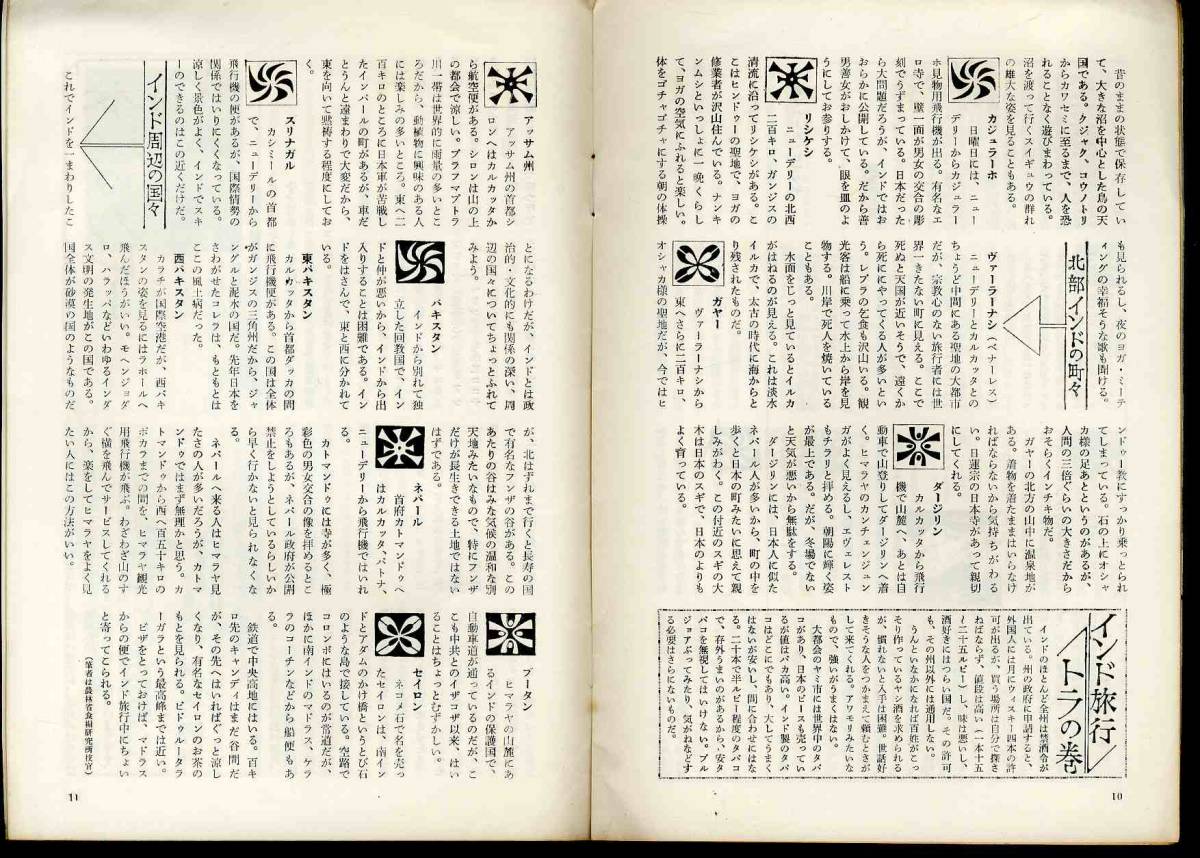 昔のままの状態で保存してい
て、大きな沼を中心とした鳥の天
国である。クジャク、コウノトリ
からカワセミに至るまで、人を恐
れることなく遊びまわっている。
沼を渡って行くスイギュウの群れ
の雄大な姿を見ることもある。
カジュラーホ
日曜日には、ニュー
デリーからカジュラー
ホ見物用飛行機が出る。有名なエ
ロ寺で、壁一面が男女の交合の彫
刻でうずまっている。日本だった
ら大問題だろうが、インドではお
おらかに公開している。だから善
男善女がおしかけて、眼を皿のよ
うにしてお参りする。
リシケシ
ニューデリーの北西
二百キロ、ガンジスの
清流に沿ってリシケシがある。こ
こはヒンドゥーの聖地で、ヨガの
修業者が沢山住んでいる。ナンキ
ンムシといっしょに一晩くらし
て、ヨガの空気にふれると楽しい。
体をゴチャゴチャにする朝の体操
も見られるし、夜のヨガ・ミーテ
ィングの幸福そうな歌も聞ける。
北部インドの町々
ヴァーラーナシ(ベナーレス)
ニューデリーとカルカッタとの
ちょうど中間にある聖地の大都市
だが、宗教心のない旅行者には世
界一きたない町に見える。ここで
死ぬと天国が近いそうで、遠くか
ら死にやってくる人が多いとい
う。レプラの乞食も沢山いる。観
光客は船に乗って水上から岸を見
物する。川岸で死人を焼いている
こともある。
水面をじっと見ているとイルカ
がはねるのが見える。これは淡水
イルカで、太古の時代に海からと
り残されたものだ。
ガヤー
ヴァーラーナシから
東へさらに二百キロ、
オシャカ様の聖地だが、今ではヒ
ンドゥー教にすっかり乗っとられ
てしまっている。石の上にオシャ
カ様の足あとというのがあるが、
人間の三倍ぐらいの大きさだから
おそらくインチキ物だ。
ガヤーの北方の山中に温泉地が
ある。着物を着たままはいらなけ
ればならないから気持ちがわる
い。日蓮宗の日本寺があって親切
にしてくれる。
ダージリン
カルカッタから飛行
機で山麓へ、あとは自
動車で山登りしてダージリンへ着
く。ヒマラヤのカンチェンジュン
ガがよく見えるし、エヴェレスト
もチラリと拝める。朝陽に輝く姿
が最上である。だが、冬場でない
と天気が悪いから無駄をする。
ダージリンには、日本人に似た
ネパール人が多いから、町の中を
歩くと日本の町みたいに思えて親
しみがわく。この付近のスギの
木は日本のスギで、日本のよりも
よく育っている。
インド旅行
トラの巻
インドのほとんど各州は禁酒令が
出ている。州の政府に申請すると、
外国人には月にウィスキー四本の許
可が出るが、買う場所は自分で探さ
ねばならず、値段は高い(一本十五
~二十五ルピー)し、味は悪いし、
酒好きにはつらい国だ。その許可
も、その州以外には通用しない。
うんといなかになれば百姓がこっ
そり作っているヤシ酒を求められる
が、慣れないと入手は困難。世話好
きそうな人をつかまえて頼むとさが
して来てくれる。アワモリみたいな
もので、強いがうまくはない。
大都会のヤミ市には世界中のタバ
コがあり、日本のピースも売ってい
るが値はバカ高い。インド製のタバ
コはどこにでもあり、大してうまく
はないが安いし、間に合わせにはな
る。二十本で半ルピー程度のタバコ
で、存外うまいのがあるから、安タ
バコを無視してはいけない。ブル
ジョアぶってみたり、気がねなどす
る必要はさらにないものだ。
10
アッサム州
アッサム州の首都シ
ロンへはカルカッタか
ら航空便がある。シロンは山の上
の都会で涼しい。ブラフマプトラ
川一帯は世界的に雨量の多いとこ
ろだから、動植物に興味のある人
には楽しみの多いところ。東へ二
百キロのところに日本軍が苦戦し
たインパールの町があるが、車だ
とうんと遠まわりで大変だから、
東を向いて黙禱する程度にしてお
く。
スリナガル
カシミールの首都
で、ニューデリーから
飛行機の便があるが、国際情勢の
関係ではいりにくくなっている。
涼しく景色がよく、インドでスキ
ーのできるのはこの近くだけだ。
インド周辺の国々
これでインドを一まわりしたこ
とになるわけだが、インドとは政
治的・文化的にも関係の深い、周
辺の国々についてちょっとふれて
みよう。
パキスタン
インドから別れて独
立した回教国で、イン
ドと仲が悪いから、インドから出
入りすることは困難である。イン
ドをはさんで、東と西に分かれて
いる。
東パキスタン
カルカッタから首都ダッカの間
に飛行機便がある。この国は全体
がガンジスの三角州だから、ジャ
ングルと泥水の国だ。先年日本を
さわがせたコレラは、もともとは
ここの風土病だった。
西パキスタン
カラチが国際空港だが、西パキ
スタンの姿を見るにはラホールへ
飛んだほうがいい。モヘンジョダ
ロ、ハラッパなどいわゆるインダ
ス文明の発生地がこの国である。
国全体が砂漠の国のようなものだ
が、北はずれまで行くと長寿の国
で有名なフンザの谷がある。この
あたりの谷はみな気候の温和な別
天地みたいなもので、特にフンザ
だけが長生きできる土地ではない
はずである。
ネパール
首府カトマンドゥへ
はカルカッタ、パトナ、
ニューデリーから飛行機ではいれ
る。
カトマンドゥには寺が多く、極
彩色の男女交合の像を拝めるとこ
ろもあるが、ネパール政府が公開
禁止をしようとしているらしいか
ら早く行かないと見られなくな
る。
ネパールへ来る人はヒマラヤ見
たさの人が多いだろうが、カトマ
ンドゥではまず無理かと思う。カ
トマンドゥから西へ百五十キロの
ポカラまでの間を、ヒマラヤ観光
用飛行機が飛ぶ。わざわざ山のす
ぐ横を飛んでサービスしてくれる
から、楽をしてヒマラヤをよく見
たい人にはこの方法がいい。
ブータン
ヒマラヤの山麓にあ
るインドの保護国で、
自動車道が通っているのだが、こ
こも中共とのイザコザ以来、はい
ることはちょっとむずかしい。
セイロン
ネコメ石で名を売っ
たセイロンは、南イン
ドとアダムのかけ橋というとび石
のような島で接している。空路で
コロンボにはいるのが常道だが、
ほかに南インドのマドラス、ケラ
ラのコーチンなどから船便もあ
る。
鉄道で中央高地にはいる。百キ
ロ先のキャンディはまだ谷間だ
が、その先へはいればぐっと涼し
くなり、有名なセイロンのお茶の
もとを見られる。ピドゥルータラ
ーガラという最高峰までは近い。
ビザをとっておけば、マドラス
からの便でインド旅行中にちょい
と寄ってこられる。
(筆者は農林省食糧研究所技官)
11